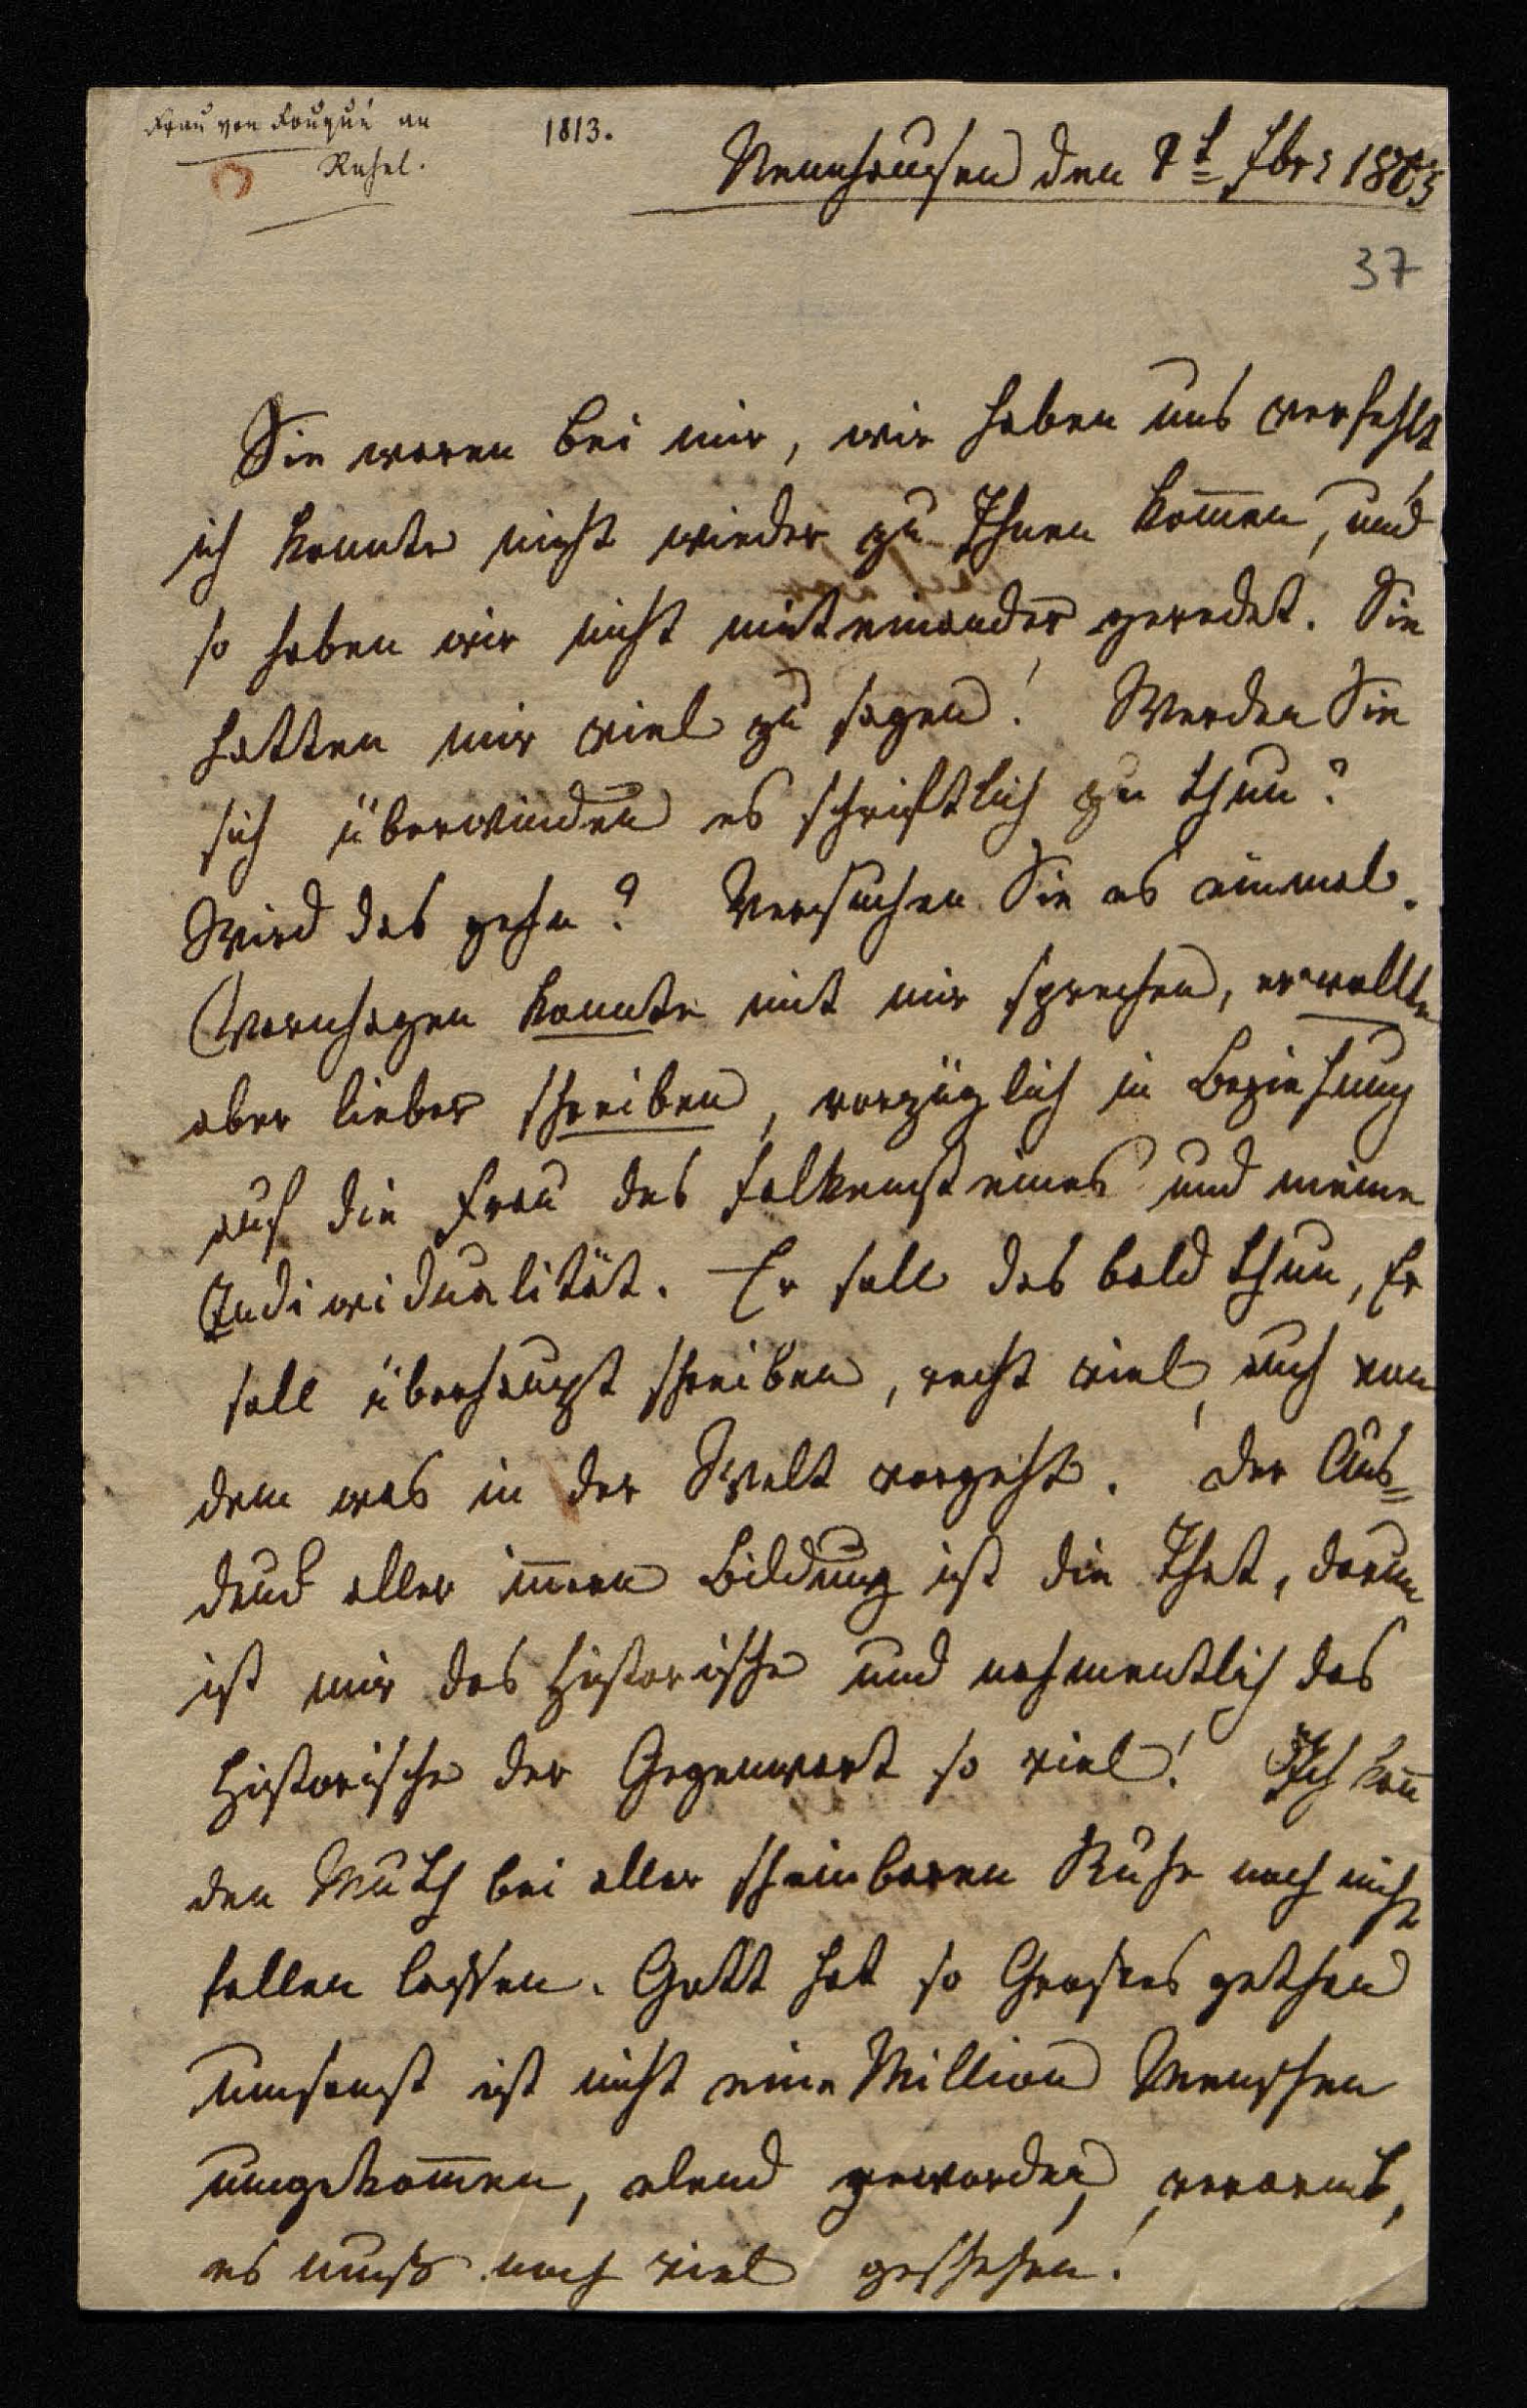 Frau von Fouqué an
Rahel.
1813.
Nennhausen den 8t Fbr 1813
37
Sie waren bei mir, wir haben uns verfehlt
ich konnte nicht wieder zu Ihnen kom̅en, und
so haben wir nicht miteinander geredet. Sie
hatten mir viel zu sagen! Werden Sie
sich überwinden es schriftlich zu thun?
Wird das gehn? Versuchen Sie es einmal.
Varnhagen konnte mit mir sprechen, er wollte
aber lieber schreiben, vorzüglich in Beziehung
auf die Frau des Falkensteines und meine
Individualität. Er soll das bald thun, Er
soll überhaupt schreiben, recht viel, auch von
dem was in der Welt vorgeht. Der Aus=
druck aller innern Bildung ist die That, darum
ist mir das Historische und nahmentlich das
Historische der Gegenwart so viel! Ich kan̅
den Muth bei aller scheinbaren Ruhe noch nicht
fallen lassen. Gott hat so Grosses gethan
umsonst ist nicht eine Million Menschen
umgekom̅en, elend geworden, verarmt,
es muß noch viel geschehen!